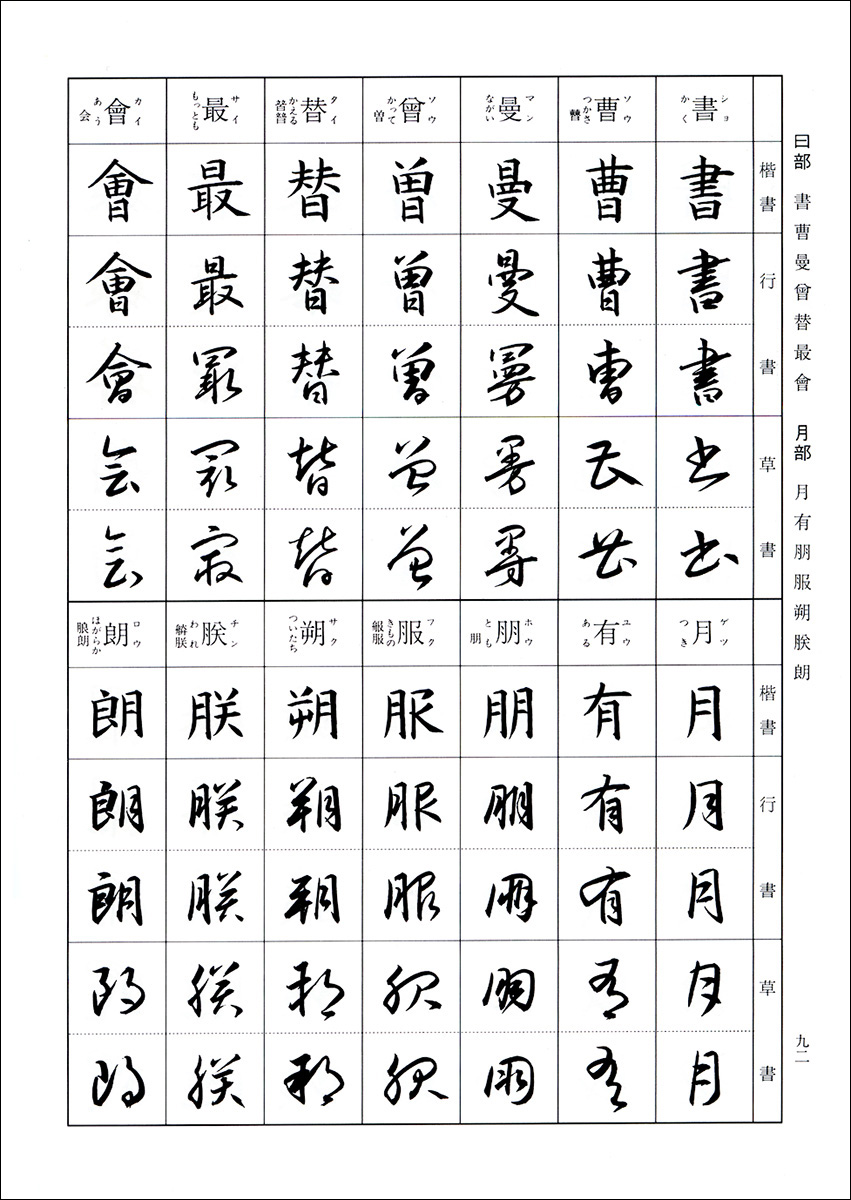 曰部 書曹曼曾替最會 月部 月有朋服朔朕朗
九二
楷書
行書
草書
書 ショ かく
書
書
書
書
書
曹 ソウ つかさ
曹
曹
曹
曹
曹
曼 マン ながい
曼
曼
曼
曼
曼
曾 ソウ かって 曽
曾
曾
曾
曾
曾
替 タイ かえる
替
替
替
替
替
最 サイ もっとも
最
最
最
最
最
會 カイ あう 会
會
會
會
会
会
楷書
行書
草書
月 ゲツ つき
月
月
月
月
月
有 ユウ ある
有
有
有
有
有
朋 ホウ とも 朋
朋
朋
朋
朋
朋
服 フク きもの
服
服
服
服
服
朔 サク ついたち
朔
朔
朔
朔
朔
朕 チン われ
朕
朕
朕
朕
朕
朗 ロウ ほがらか
朗
朗
朗
朗
朗